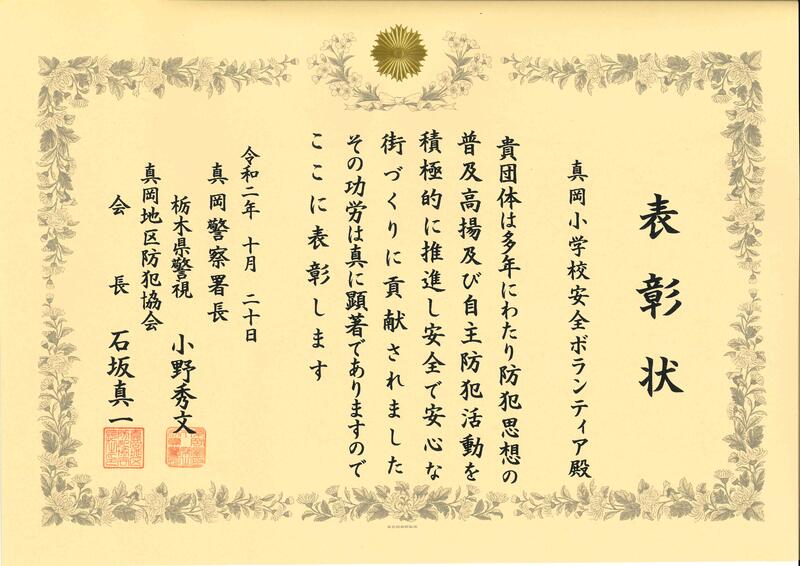 表彰状
真岡小学校安全ボランティア殿
貴団体は多年にわたり防犯思想の
普及高揚及び自主防犯活動を
積極的に推進し安全で安心な
街づくりに貢献されました
その功労は真に顕著でありますので
ここに表彰します
令和二年 十月 二十日
真岡警察署長
栃木県警視 小野秀文
真岡地区防犯協会
会長 石坂真一